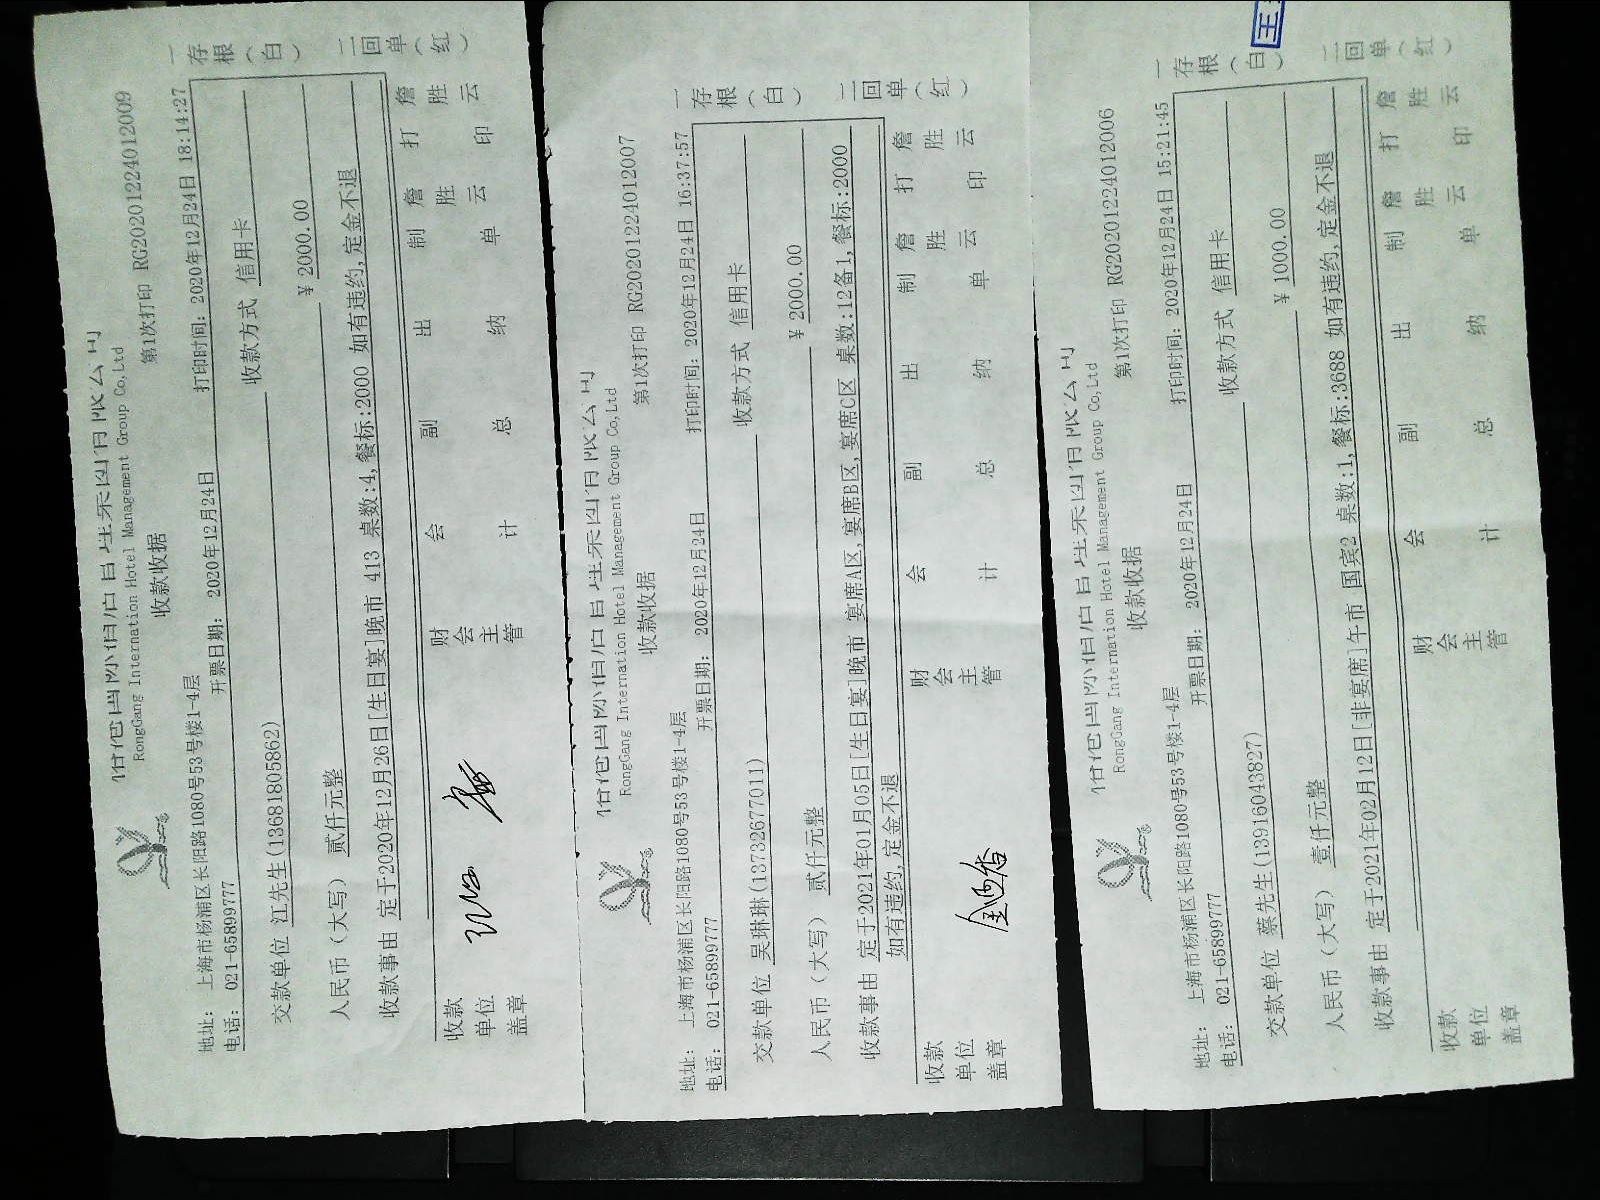 RongGang Internation Hotel Management Group Co,Ltd
收款收据
第1次打印 RG20201224012009
地址: 上海市杨浦区长阳路1080号53号楼1-4层
电话: 021-65899777
开票日期: 2020年12月24日
打印时间: 2020年12月24日 18:14:27
交款单位 江先生(13681805862)
收款方式 信用卡
人民币(大写) 贰仟元整
¥ 2000.00
收款事由 定于2020年12月26日[生日宴]晚市 413 桌数:4,餐标:2000 如有违约,定金不退
收款单位盖章
财会主管
会计
副总
出纳
制单 詹胜云
打印 詹胜云
一存根(白)
二回单(红)
RongGang Internation Hotel Management Group Co,Ltd
收款收据
第1次打印 RG20201224012007
地址: 上海市杨浦区长阳路1080号53号楼1-4层
电话: 021-65899777
开票日期: 2020年12月24日
打印时间: 2020年12月24日 16:37:57
交款单位 吴琳琳(13732677011)
收款方式 信用卡
人民币(大写) 贰仟元整
¥ 2000.00
收款事由 定于2021年01月05日[生日宴]晚市 宴席A区,宴席B区,宴席C区 桌数:12备1,餐标:2000
如有违约,定金不退
收款单位盖章
财会主管
会计
副总
出纳
制单 詹胜云
打印 詹胜云
一存根(白)
二回单(红)
RongGang Internation Hotel Management Group Co,Ltd
收款收据
第1次打印 RG20201224012006
地址: 上海市杨浦区长阳路1080号53号楼1-4层
电话: 021-65899777
开票日期: 2020年12月24日
打印时间: 2020年12月24日 15:21:45
交款单位 蔡先生(13916043827)
收款方式 信用卡
人民币(大写) 壹仟元整
¥ 1000.00
收款事由 定于2021年02月12日[非宴席]午市 国宾2 桌数:1,餐标:3688 如有违约,定金不退
收款单位盖章
财会主管
会计
副总
出纳
制单 詹胜云
打印 詹胜云
一存根(白)
二回单(红)
王